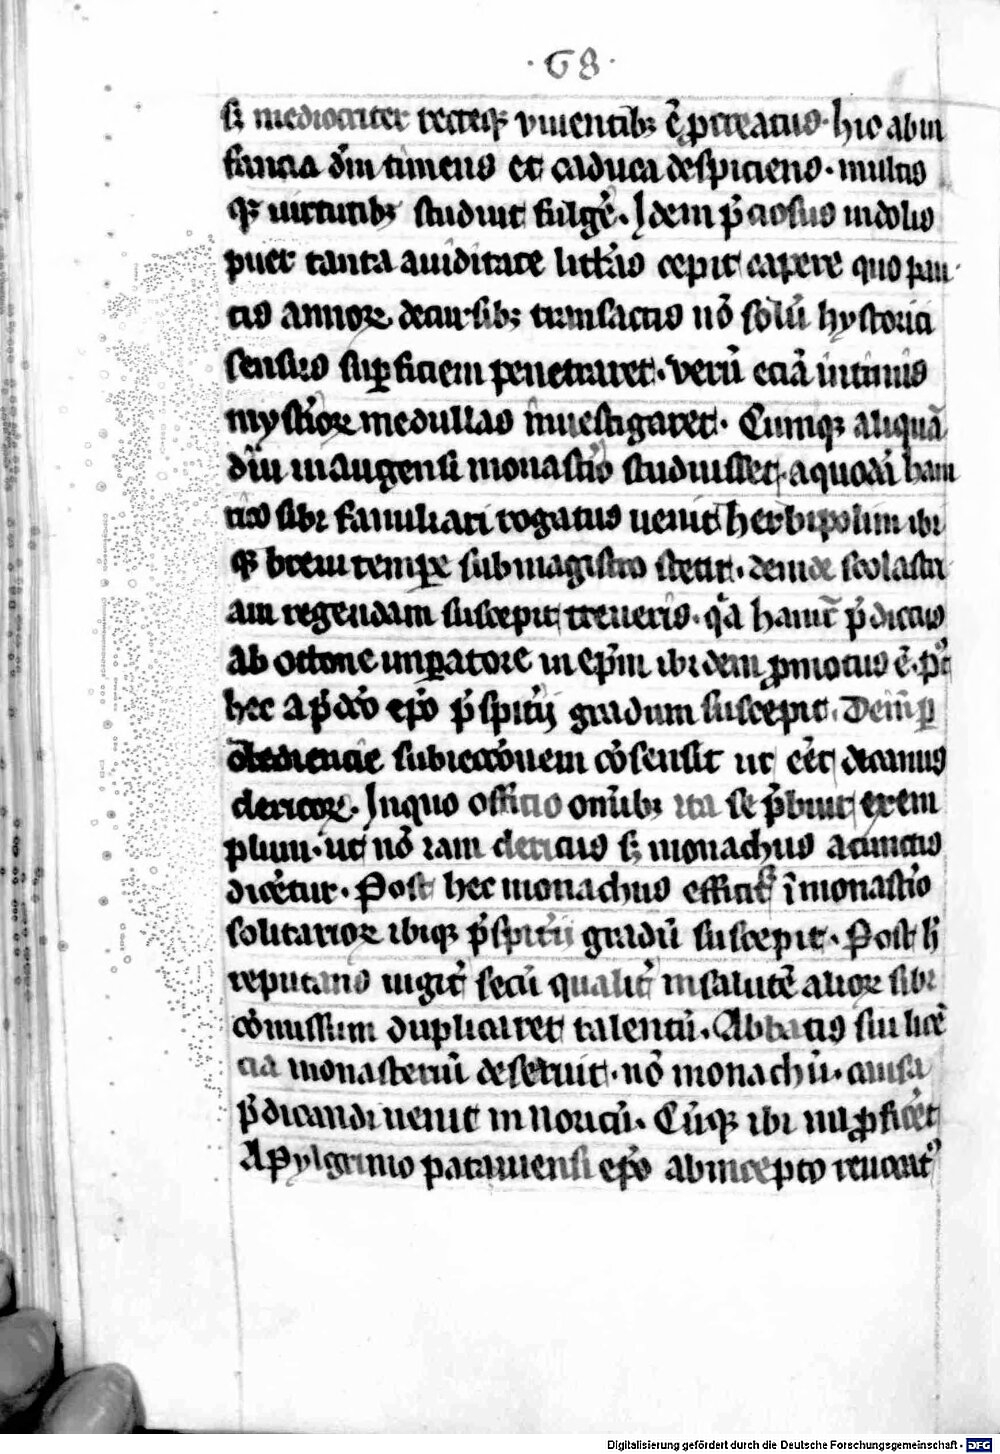 ·68·
sꝫ mediocriter recteqꝫ viuentibꝫ ē ꝓcreatus· hic ab in
fancia dm̄ timens et caduca despiciens· multis
qꝫ uirtutibꝫ studuit fulgē· Idem p̄ciosus indolis
puer tanta auiditate litt̄as cepit capere quo pau
cis annoꝝ decursibꝫ transactis nō solū hystorici
sensus suꝑficiem penetraret· verū eciā intimis
mysticoꝝ medullas inuestigaret· Cumqꝫ aliquā
diu in augensi monast̄io studuisset· a quodā hain
rico sibi familiari rogatus uenit herbipolim ibi
qꝫ breui tempore sub magistro stetit· deinde scolasti
am regendam suscepit treueris· q̄a hainr̄ p̄dictus
ab ottone imꝑatore in ep̄m ibidem ꝓmotus ē· p̄t
hec a p̄dc̄o ep̄o p̄spit̄ij gradum suscepit· Dein ꝑ
obediencie subiecc̄onem cōsensit ut eēt decanus
clericoꝝ· In quo officio om̄ibꝫ ita se p̄buit exem
plum· ut nō iam clericus sꝫ monachus a cunctis
dicētur· Post hec monachus efficit᷑ ī monast̄io
solitarioꝝ ibiqꝫ p̄spit̄ij gradū suscepit· Post h̄
reputans iugit̄ secū qualit̄ in salutē alioꝝ sibi
cōmissum duplicaret talentū· Abbatis sui licē
cia monasteriū deseruit· nō monachū· causa
p̄dicandi uenit in noricū· Cūqꝫ ibi nil ꝓficēt
A pylgrimo patauiensi ep̄o ab incepto reuocat᷑
Digitalisierung gefördert durch die Deutsche Forschungsgemeinschaft - DFG